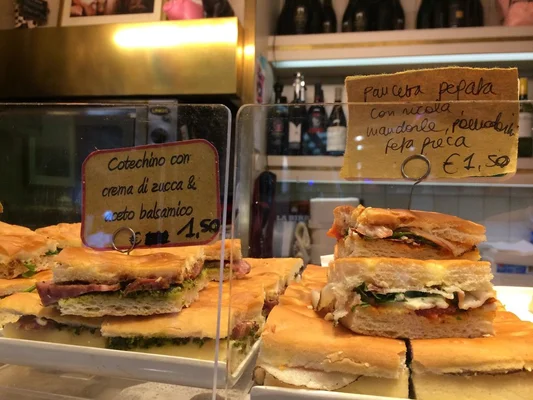 Cotechino con
crema di zucca &
aceto balsamico
€ 1,50
pancetta pepata
con rucola,
mandorle, pomodorini
feta greca
€ 1,50